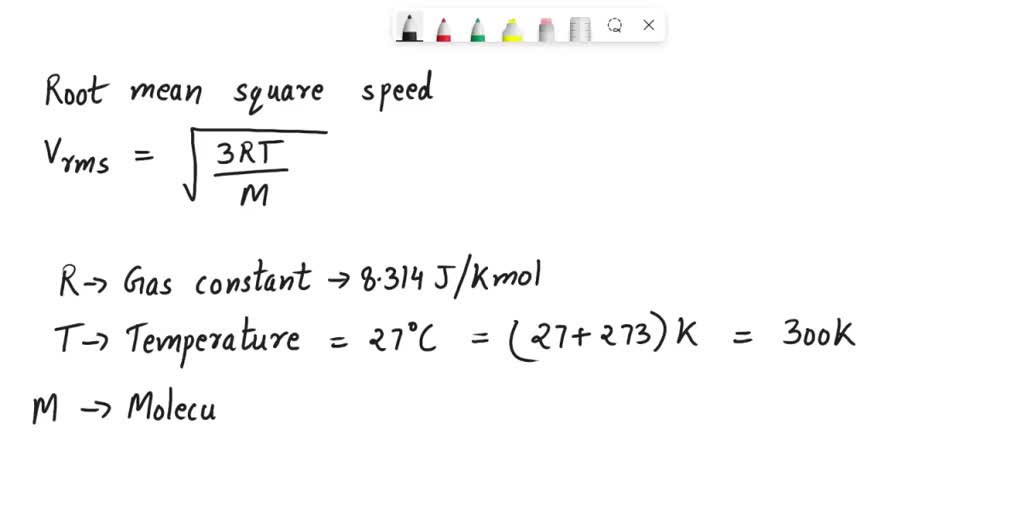 Root mean square speed
Vrms = √3RT/M
R → Gas constant → 8.314 J/Kmol
T → Temperature = 27°C = (27+273)K = 300K
M → Molecu